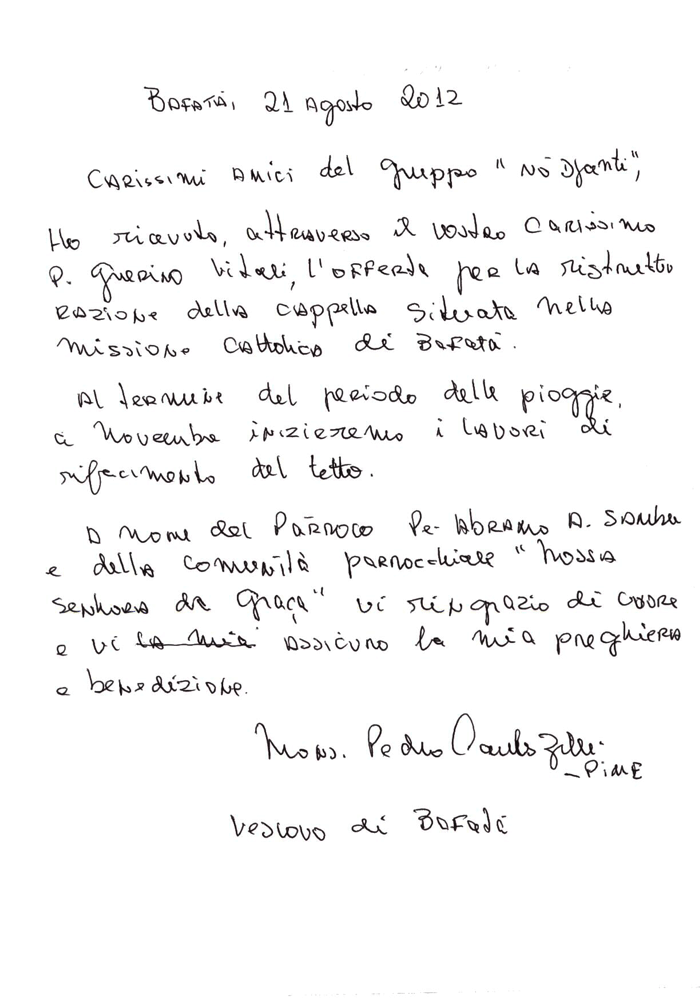 BAFATÁ, 21 Agosto 2012
CARissimi AMici del gruppo "NÔ DJanti",
Ho ricevuto, attraverso il vostro carissimo
P. Guerino Vitali, l'offerta per la ristruttu
razione della cappella situata nella
missione cattolica di Bafatá.
Al termine del periodo delle pioggie,
a Novembre inizieremo i lavori di
rifacimento del tetto.
A nome del Parroco Pe. Abramo A. Sambu
e della comunità parrocchiale "Nossa
Senhora da Graça" vi ringrazio di cuore
e vi la mia assicuro la mia preghiera
e benedizione.
Mons. Pedro Carlos Zilli.
- PIME
Vescovo di Bafatá